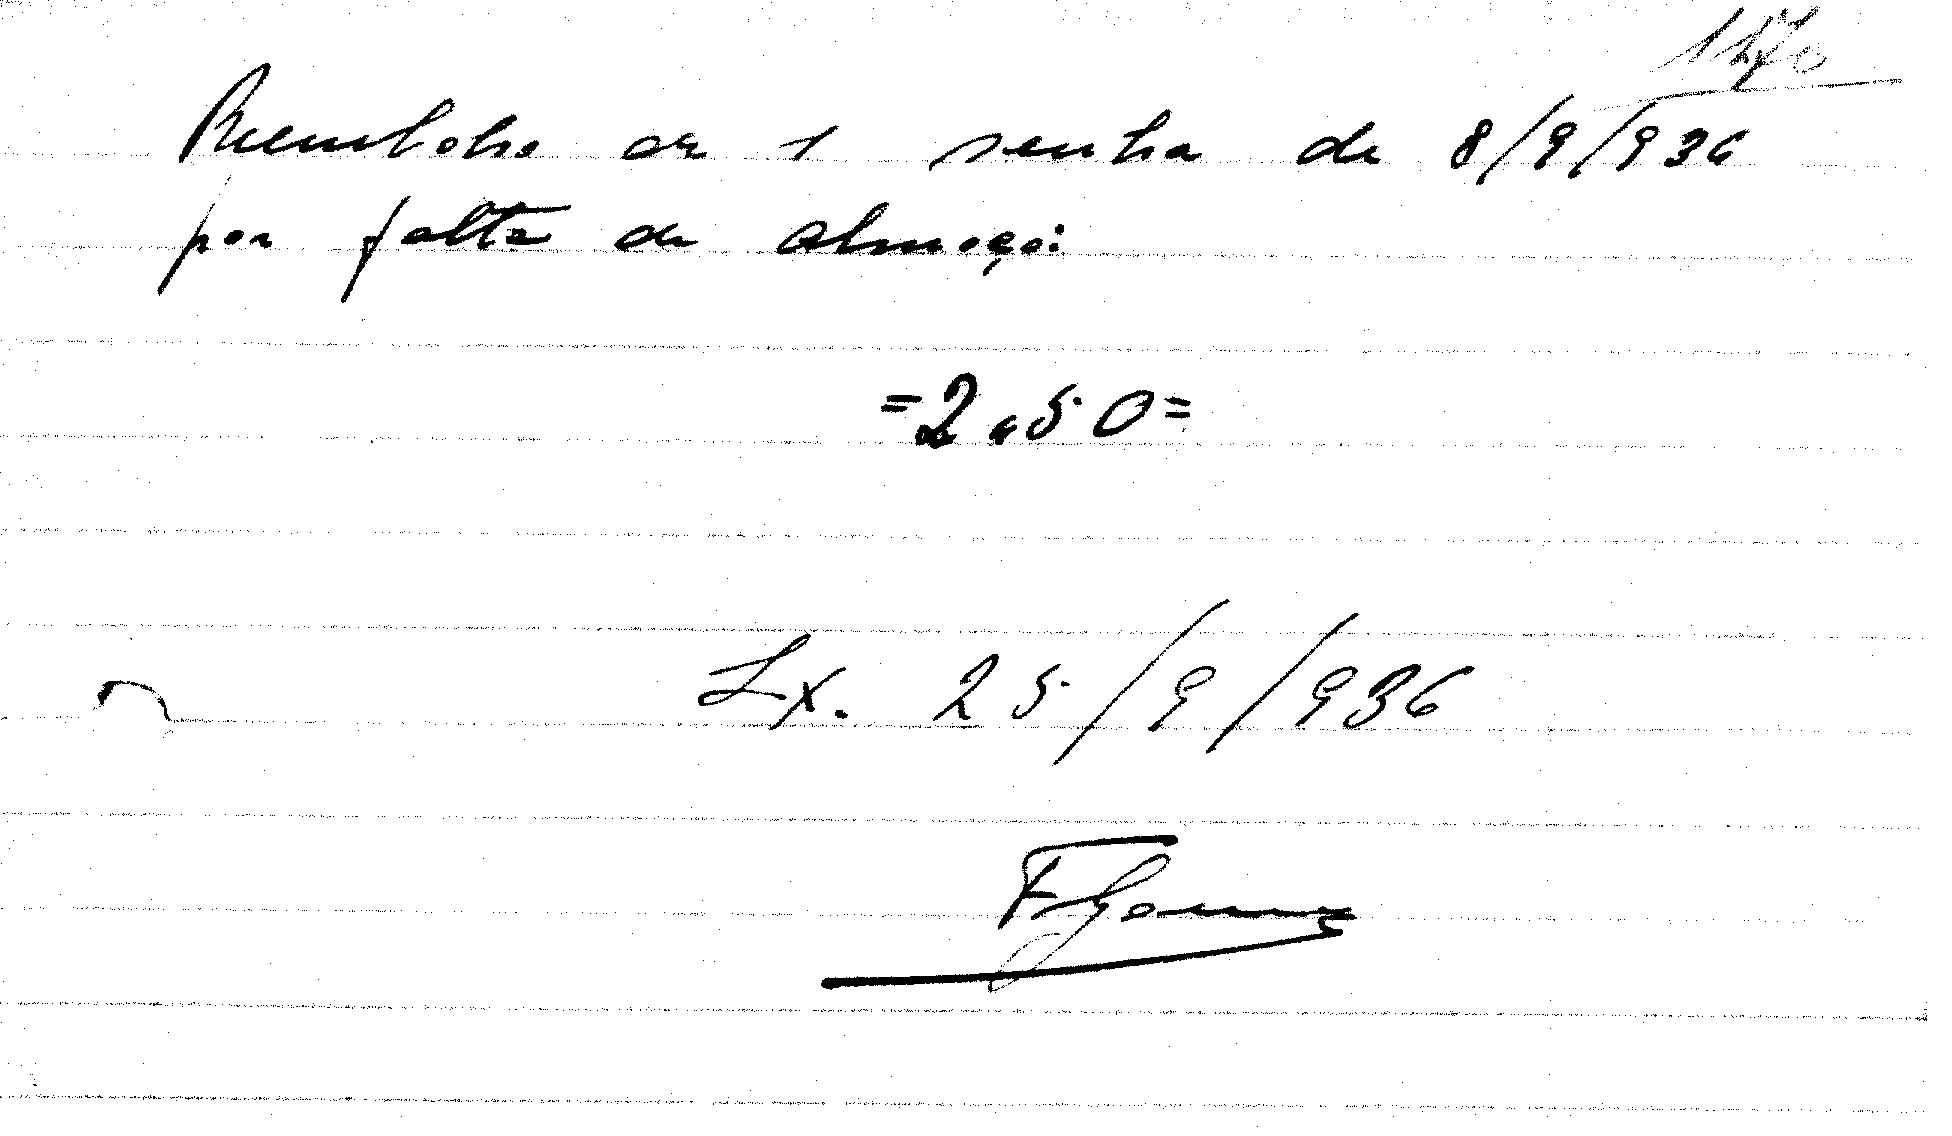 Reembolso de 1 senha de 8/9/936
por falta de almoço:
=2,50=
Lx. 25/9/936
FGomes